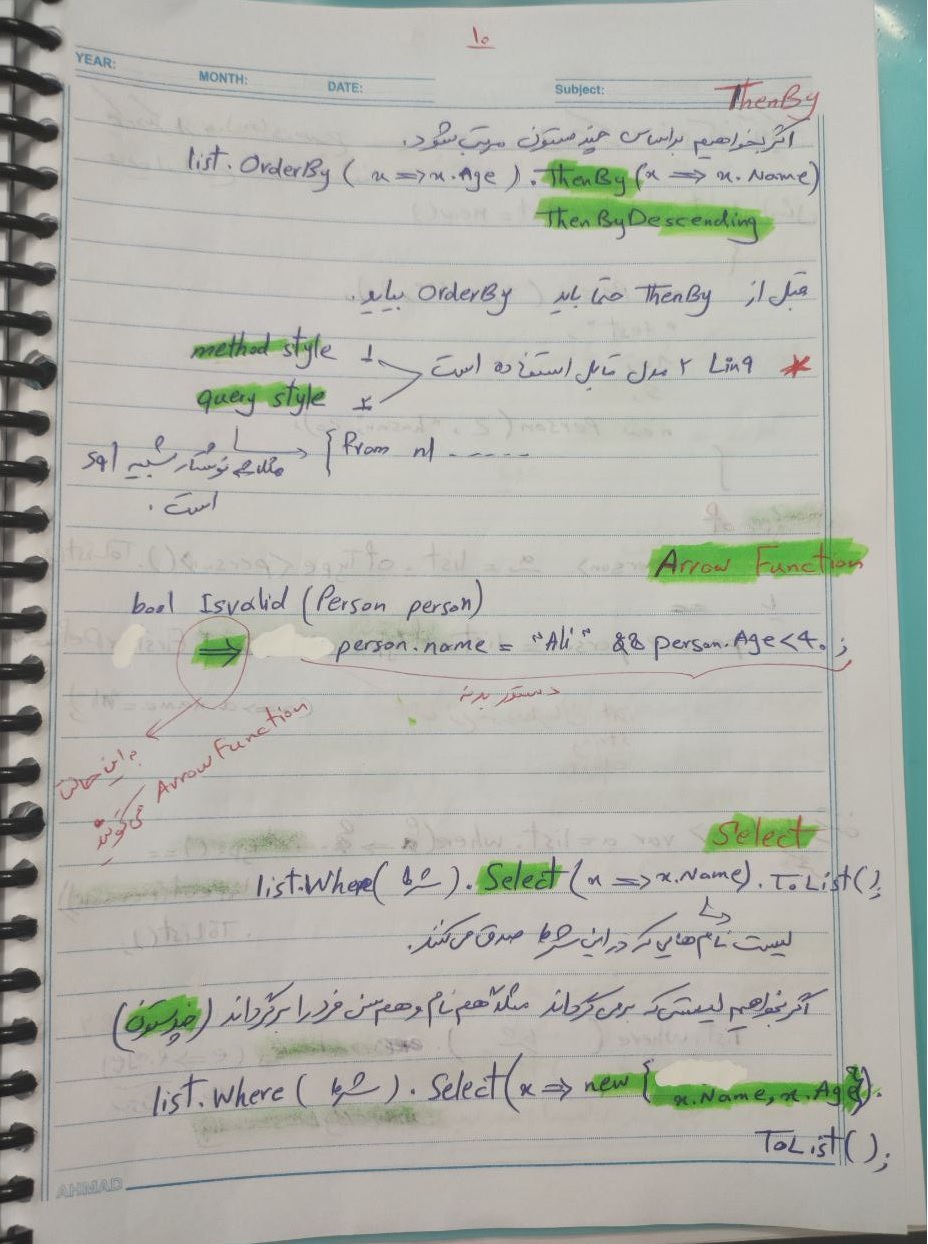 ۱۰
YEAR: MONTH: DATE: Subject:
ThenBy
اگر بخواهیم براساس چند ستون مرتب شود.
list.OrderBy ( x => x.Age ) . ThenBy (x => x.Name)
ThenByDescending
قبل از ThenBy حتما باید OrderBy بیاید.
* Linq ۲ مدل قابل استفاده است
۱- method style
۲- query style
{ from n/ - - - - - -
نوشتار شبیه sql
است.
Arrow Function
bool Isvalid (Person person)
=> person.name = "Ali" && person.Age<4.;
دستور بدنه
به این حالت
Arrow Function
می‌گویند
Select
list.Where( شرط ). Select (x => x.Name). ToList();
لیست نام‌هایی که در این شرط صدق می‌کنند.
اگر بخواهیم لیستی که برمی‌گرداند مثلا هم نام و هم سن فرد را برگرداند (چند ستون)
list.Where ( شرط ) . Select (x => new { x.Name, x.Age}).
ToList();
AHMAD